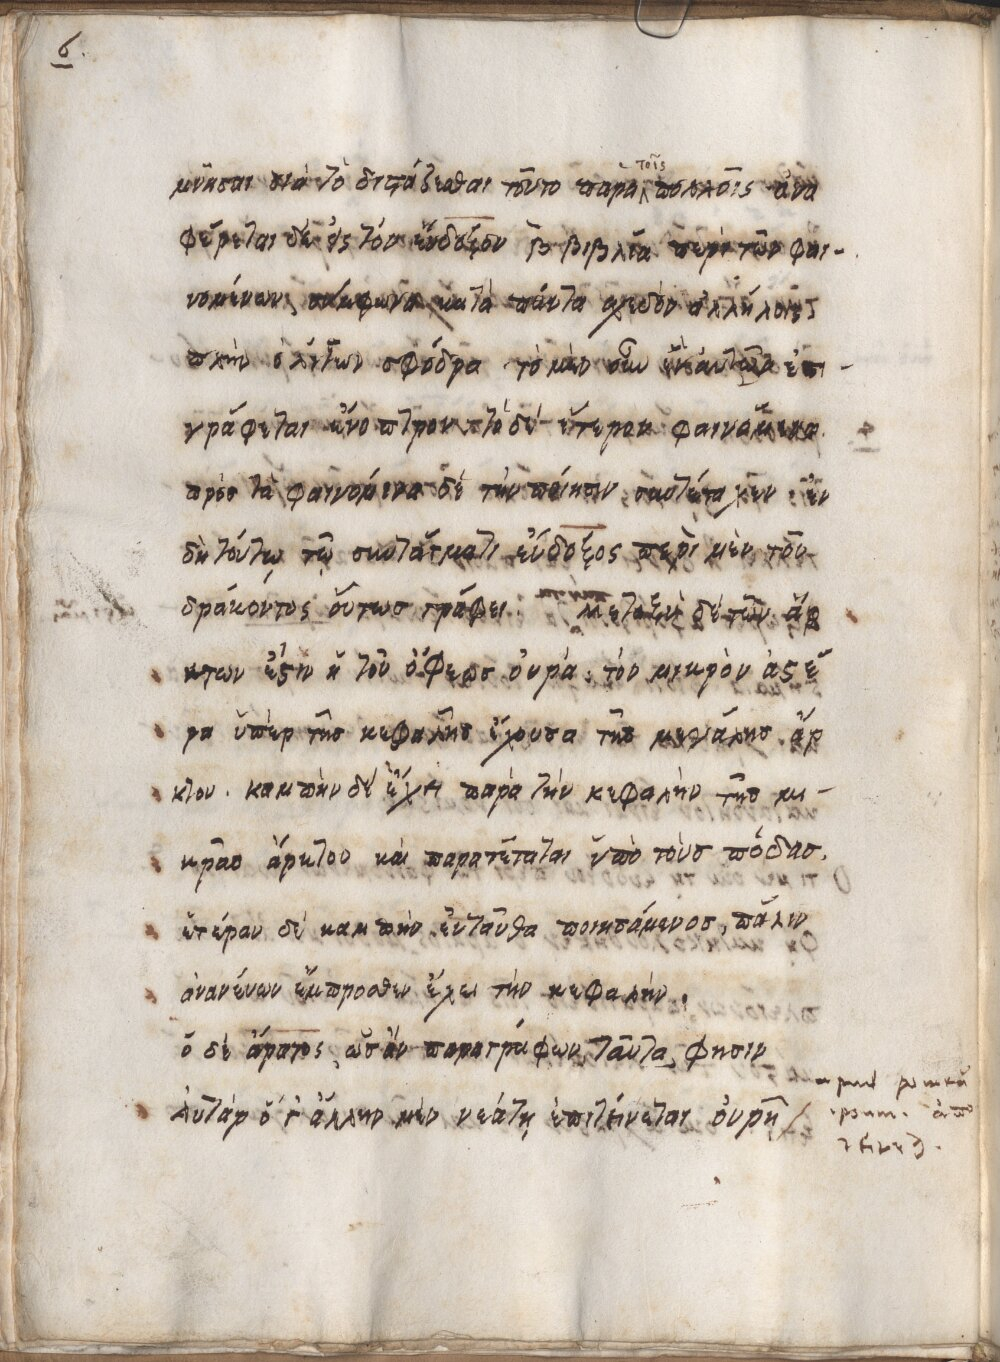 6.
μνῆσαι διὰ τὸ διστάζεσθαι τοῦτο παρὰ τοῖς πολλοῖς ἀνα
φέρεται δὲ εἰς τὸν εὔδοξον β βιβλία περὶ τῶν φαι-
νομένων, σύμφωνα κατὰ πάντα σχεδὸν ἀλλήλοις
πλὴν ὀλίγων σφόδρα τὸ μὲν οὖν ἓν αὐτῶν ἐπι-
γράφεται ἔνοπτρον τὸ δὲ ἕτερον φαινόμενα.
πρὸς τὰ φαινόμενα δὲ τὴν ποίησιν συντέταχεν. ἐν
δὴ τούτῳ τῷ συντάγματι εὔδοξος περὶ μὲν τοῦ
δράκοντος οὕτως γράφει. Μεταξὺ δὲ τῶν ἄρ
κτων ἐστὶν ἡ τοῦ ὄφεως οὐρά, τὸν μικρὸν ἀστέ
ρα ὑπὲρ τῆς κεφαλῆς ἔχουσα τῆς μεγάλης ἄρ
κτου. καμπὴν δὲ ἔχει παρὰ τὴν κεφαλὴν τῆς μι-
κρᾶς ἄρκτου καὶ παρατέταται ὑπὸ τοὺς πόδας.
ἑτέραν δὲ καμπὴν ἐνταῦθα ποιησάμενος, πάλιν
ἀνανεύων ἔμπροσθεν ἔχει τὴν κεφαλήν.
ὁ δὲ ἄρατος ὡσὰν παραγράφων ταῦτα φησιν
Αὐτὰρ ὅ γ' ἄλλην μὲν νεάτῃ ἐπιτείνεται οὐρῇ /